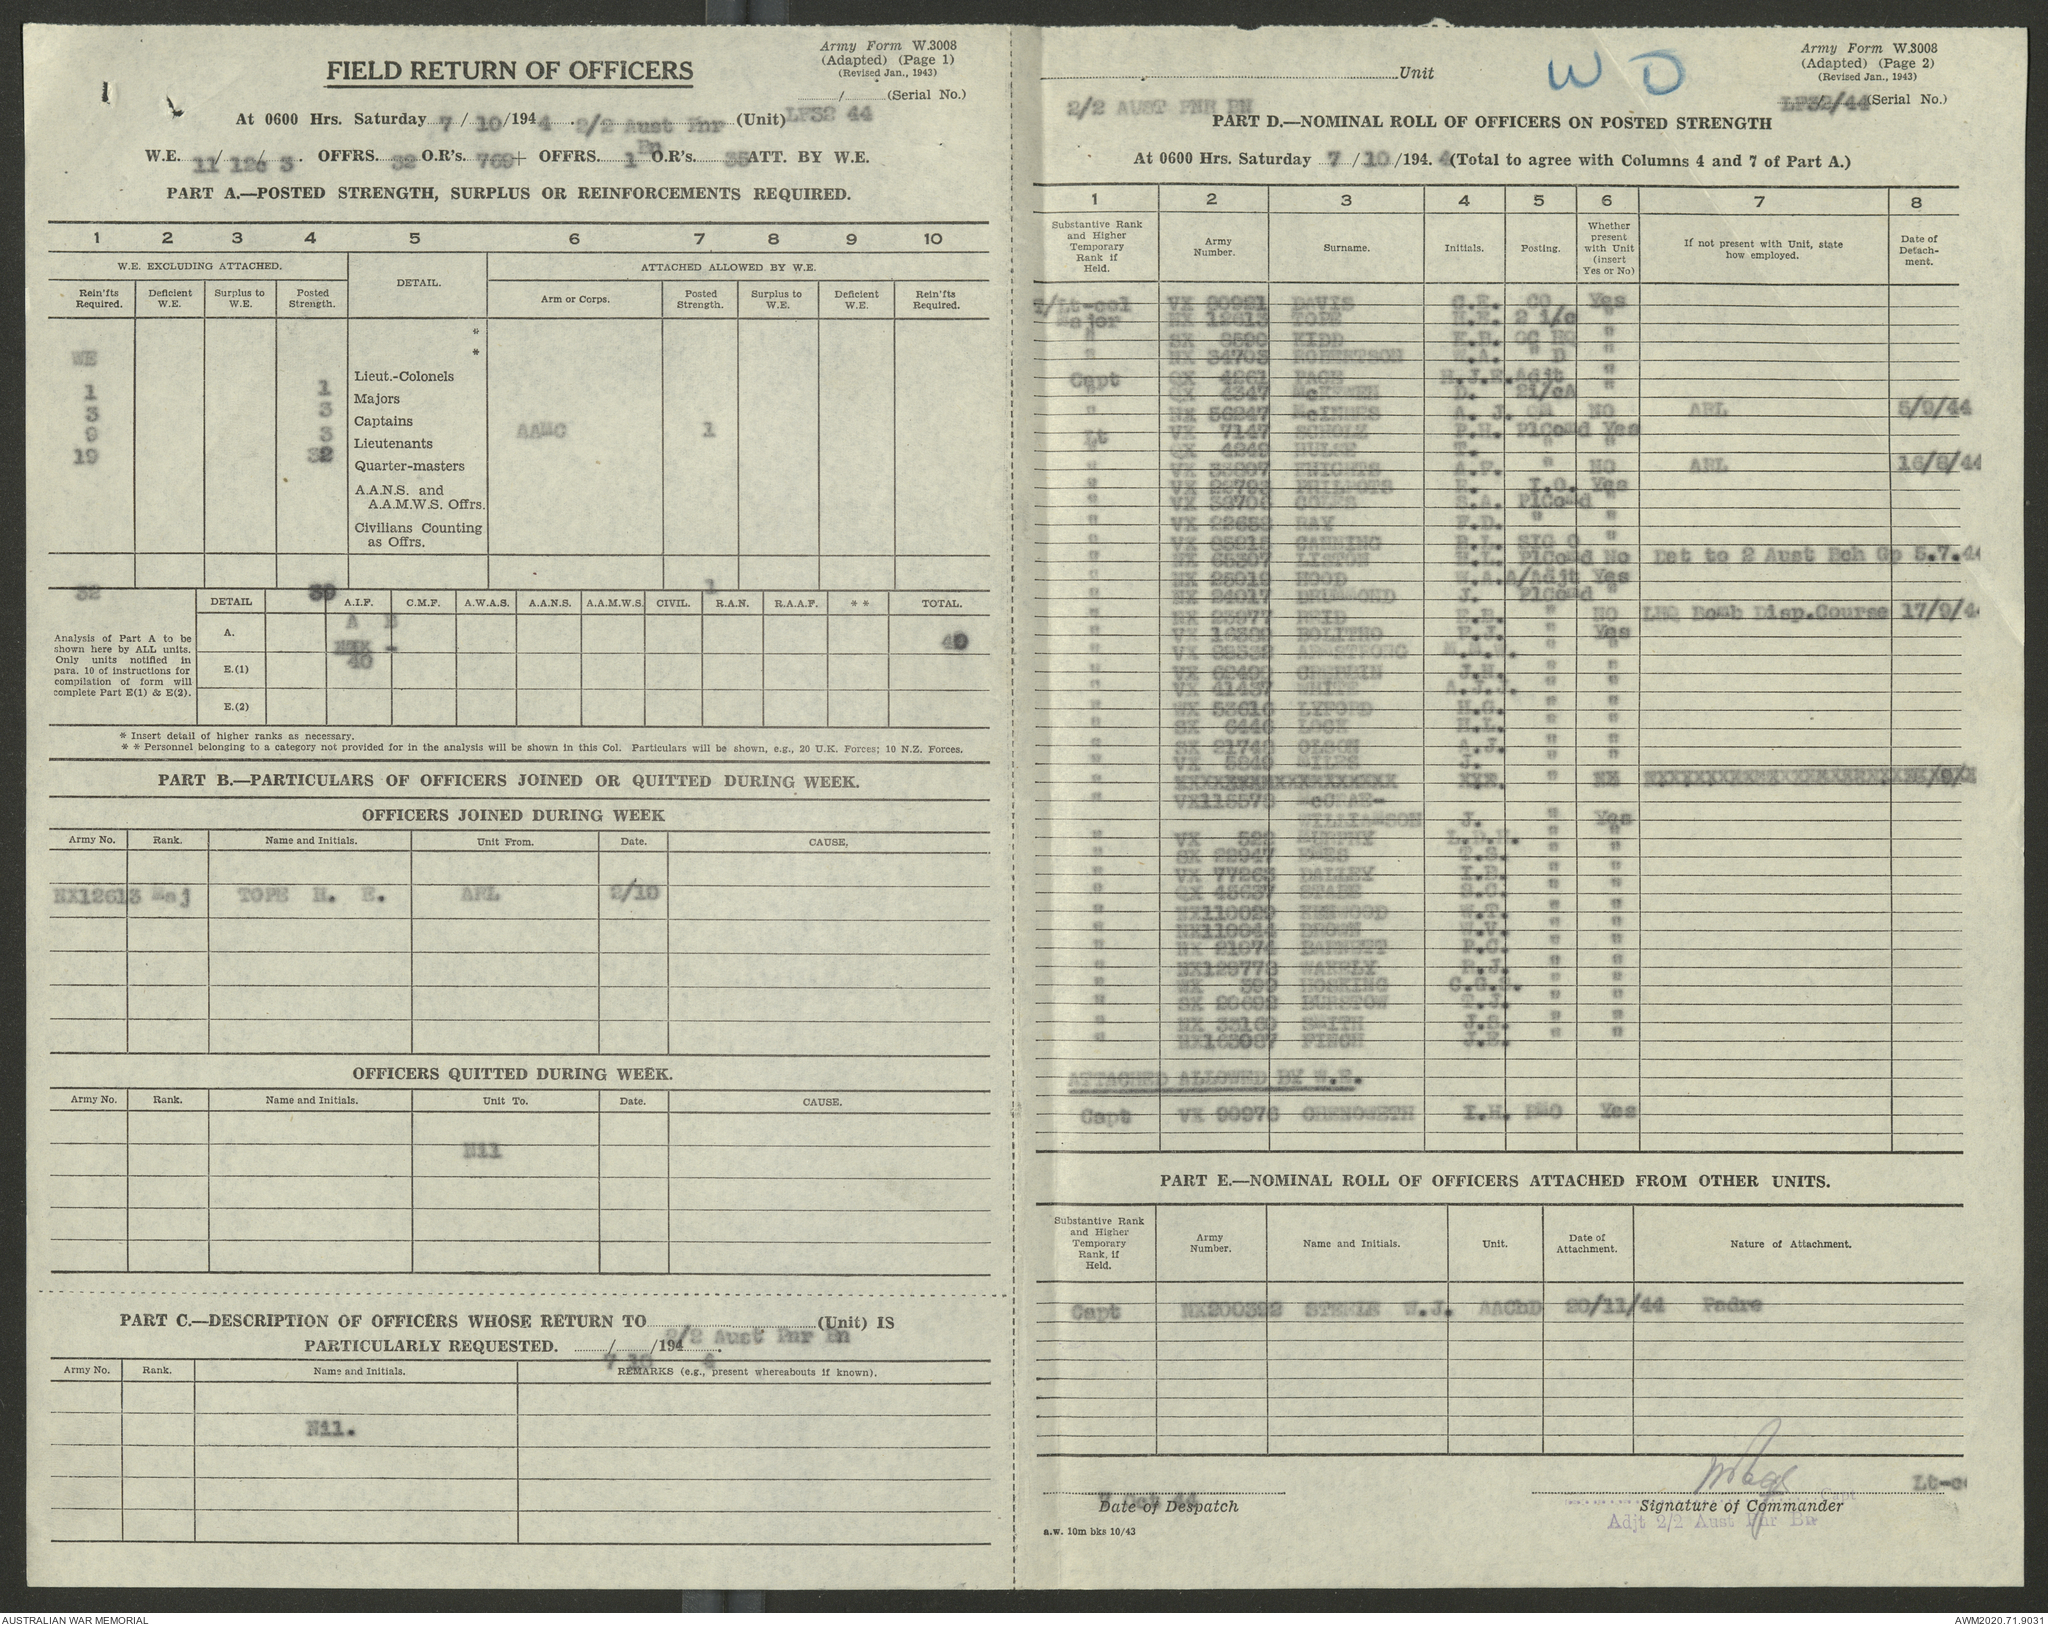 FIELD RETURN OF OFFICERS
Army Form W.3008
(Adapted) (Page 1)
(Revised Jan., 1943)
....../......(Serial No.)
At 0600 Hrs. Saturday 7/10/1944 2/2 Aust Pnr Bn (Unit) LF32 44
W.E. 11/ 12c/ 3. OFFRS. 32 O.R's. 769+ OFFRS. 1 O.R's. 35 ATT. BY W.E.
PART A.—POSTED STRENGTH, SURPLUS OR REINFORCEMENTS REQUIRED.
1 2 3 4 5 6 7 8 9 10
W.E. EXCLUDING ATTACHED. DETAIL. ATTACHED ALLOWED BY W.E.
Rein'fts Required. Deficient W.E. Surplus to W.E. Posted Strength. Arm or Corps. Posted Strength. Surplus to W.E. Deficient W.E. Rein'fts Required.
*
*
WE
Lieut.-Colonels
1 1
Majors
3 3
Captains
9 3 AAMC 1
Lieutenants
19 32
Quarter-masters
A.A.N.S. and
A.A.M.W.S. Offrs.
Civilians Counting
as Offrs.
32 39 1
DETAIL A.I.F. C.M.F. A.W.A.S. A.A.N.S. A.A.M.W.S. CIVIL. R.A.N. R.A.A.F. * * TOTAL.
Analysis of Part A to be shown here by ALL units. Only units notified in para. 10 of instructions for compilation of form will complete Part E(1) & E(2).
A. A B 40
E.(1) 40
E.(2)
* Insert detail of higher ranks as necessary.
* * Personnel belonging to a category not provided for in the analysis will be shown in this Col. Particulars will be shown, e.g., 20 U.K. Forces; 10 N.Z. Forces.
PART B.—PARTICULARS OF OFFICERS JOINED OR QUITTED DURING WEEK.
OFFICERS JOINED DURING WEEK
Army No. Rank. Name and Initials. Unit From. Date. CAUSE.
NX12613 Maj TOPE H. E. ARL 2/10
OFFICERS QUITTED DURING WEEK.
Army No. Rank. Name and Initials. Unit To. Date. CAUSE.
Nil
PART C.—DESCRIPTION OF OFFICERS WHOSE RETURN TO 2/2 Aust Pnr Bn (Unit) IS
PARTICULARLY REQUESTED. 7/10/1944.
Army No. Rank. Name and Initials. REMARKS (e.g., present whereabouts if known).
Nil.
Unit
WD
Army Form W.3008
(Adapted) (Page 2)
(Revised Jan., 1943)
2/2 AUST PNR BN
LF32/44 (Serial No.)
PART D.—NOMINAL ROLL OF OFFICERS ON POSTED STRENGTH
At 0600 Hrs. Saturday 7/10/1944 (Total to agree with Columns 4 and 7 of Part A.)
1 2 3 4 5 6 7 8
Substantive Rank and Higher Temporary Rank if Held. Army Number. Surname. Initials. Posting. Whether present with Unit (insert Yes or No) If not present with Unit, state how employed. Date of Detachment.
T/Lt-col VX 90921 DAVIS C.E. CO Yes
Major NX 12613 TOPE H.E. 2 i/c "
" SX 9590 KIDD OC HQ "
" NX 34703 ROBERTSON W.A. " D "
Capt QX 4261 PAGE H.J.E. Adjt "
" QX 4347 McKEWEN D. 2i/cA "
" NX 56247 McINNES A. J. QM NO ARL 5/9/44
Lt VX 7147 SCHOLZ P.H. PlComd Yes
" QX 4249 HULSE T. " "
" KNIGHTS A.F. " NO ARL 16/8/44
" VX 22793 PHILPOTS E. I.O. Yes
" VX 39706 COLES S.A. PlComd "
" VX 22653 RAY F.D. " "
" CANNING SIG O "
" NX 65307 LISTON PlComd No Det to 2 Aust Bch Gp 5.7.44
" NX 25019 HOOD W.A. A/Adjt Yes
" NX 24017 DRUMMOND J. PlComd "
" NX 25977 REID E.B. " NO LHQ Bomb Disp.Course 17/9/44
" BOLITHO F.J. " Yes
" ARMSTRONG " "
" J.H. " "
" VX 41437 WHITE A.J.J. " "
" WX 53616 LYFORD H.G. " "
" SX 6446 LOCK H.L. " "
" SX 21748 OLSON A.J. " "
" VX 5049 MILES J. " "
" VX118578 McCRAE-
WILLIAMSON J. " Yes
" VX 522 MURPHY L.D.H. " "
" SX 22947 EMES T.S. " "
" VX 77265 DALLEY " "
" QX 45637 STABE S.C. " "
" NX110029 KENWOOD W.T. " "
" NX110044 BROWN W.V. " "
" NX 21674 BARNETT P.C. " "
" NX129778 WAKELY R.J. " "
" WX 399 HOSKING C.G.S. " "
" SX 20692 BURSTOW T.J. " "
" NX 33169 SMITH J.S. " "
" NX163087 FINCH J.E. " "
ATTACHED ALLOWED BY W.E.
Capt VX 90976 CHENOWETH I.H. RMO Yes
PART E.—NOMINAL ROLL OF OFFICERS ATTACHED FROM OTHER UNITS.
Substantive Rank and Higher Temporary Rank, if Held. Army Number. Name and Initials. Unit. Date of Attachment. Nature of Attachment.
Capt NX200392 STEELE W.J. AAChD 20/11/44 Padre
7 Oct 44
Date of Despatch
Lt-co
Signature of Commander
Capt
Adjt 2/2 Aust Pnr Bn
a.w. 10m bks 10/43
AUSTRALIAN WAR MEMORIAL
AWM2020.71.9031